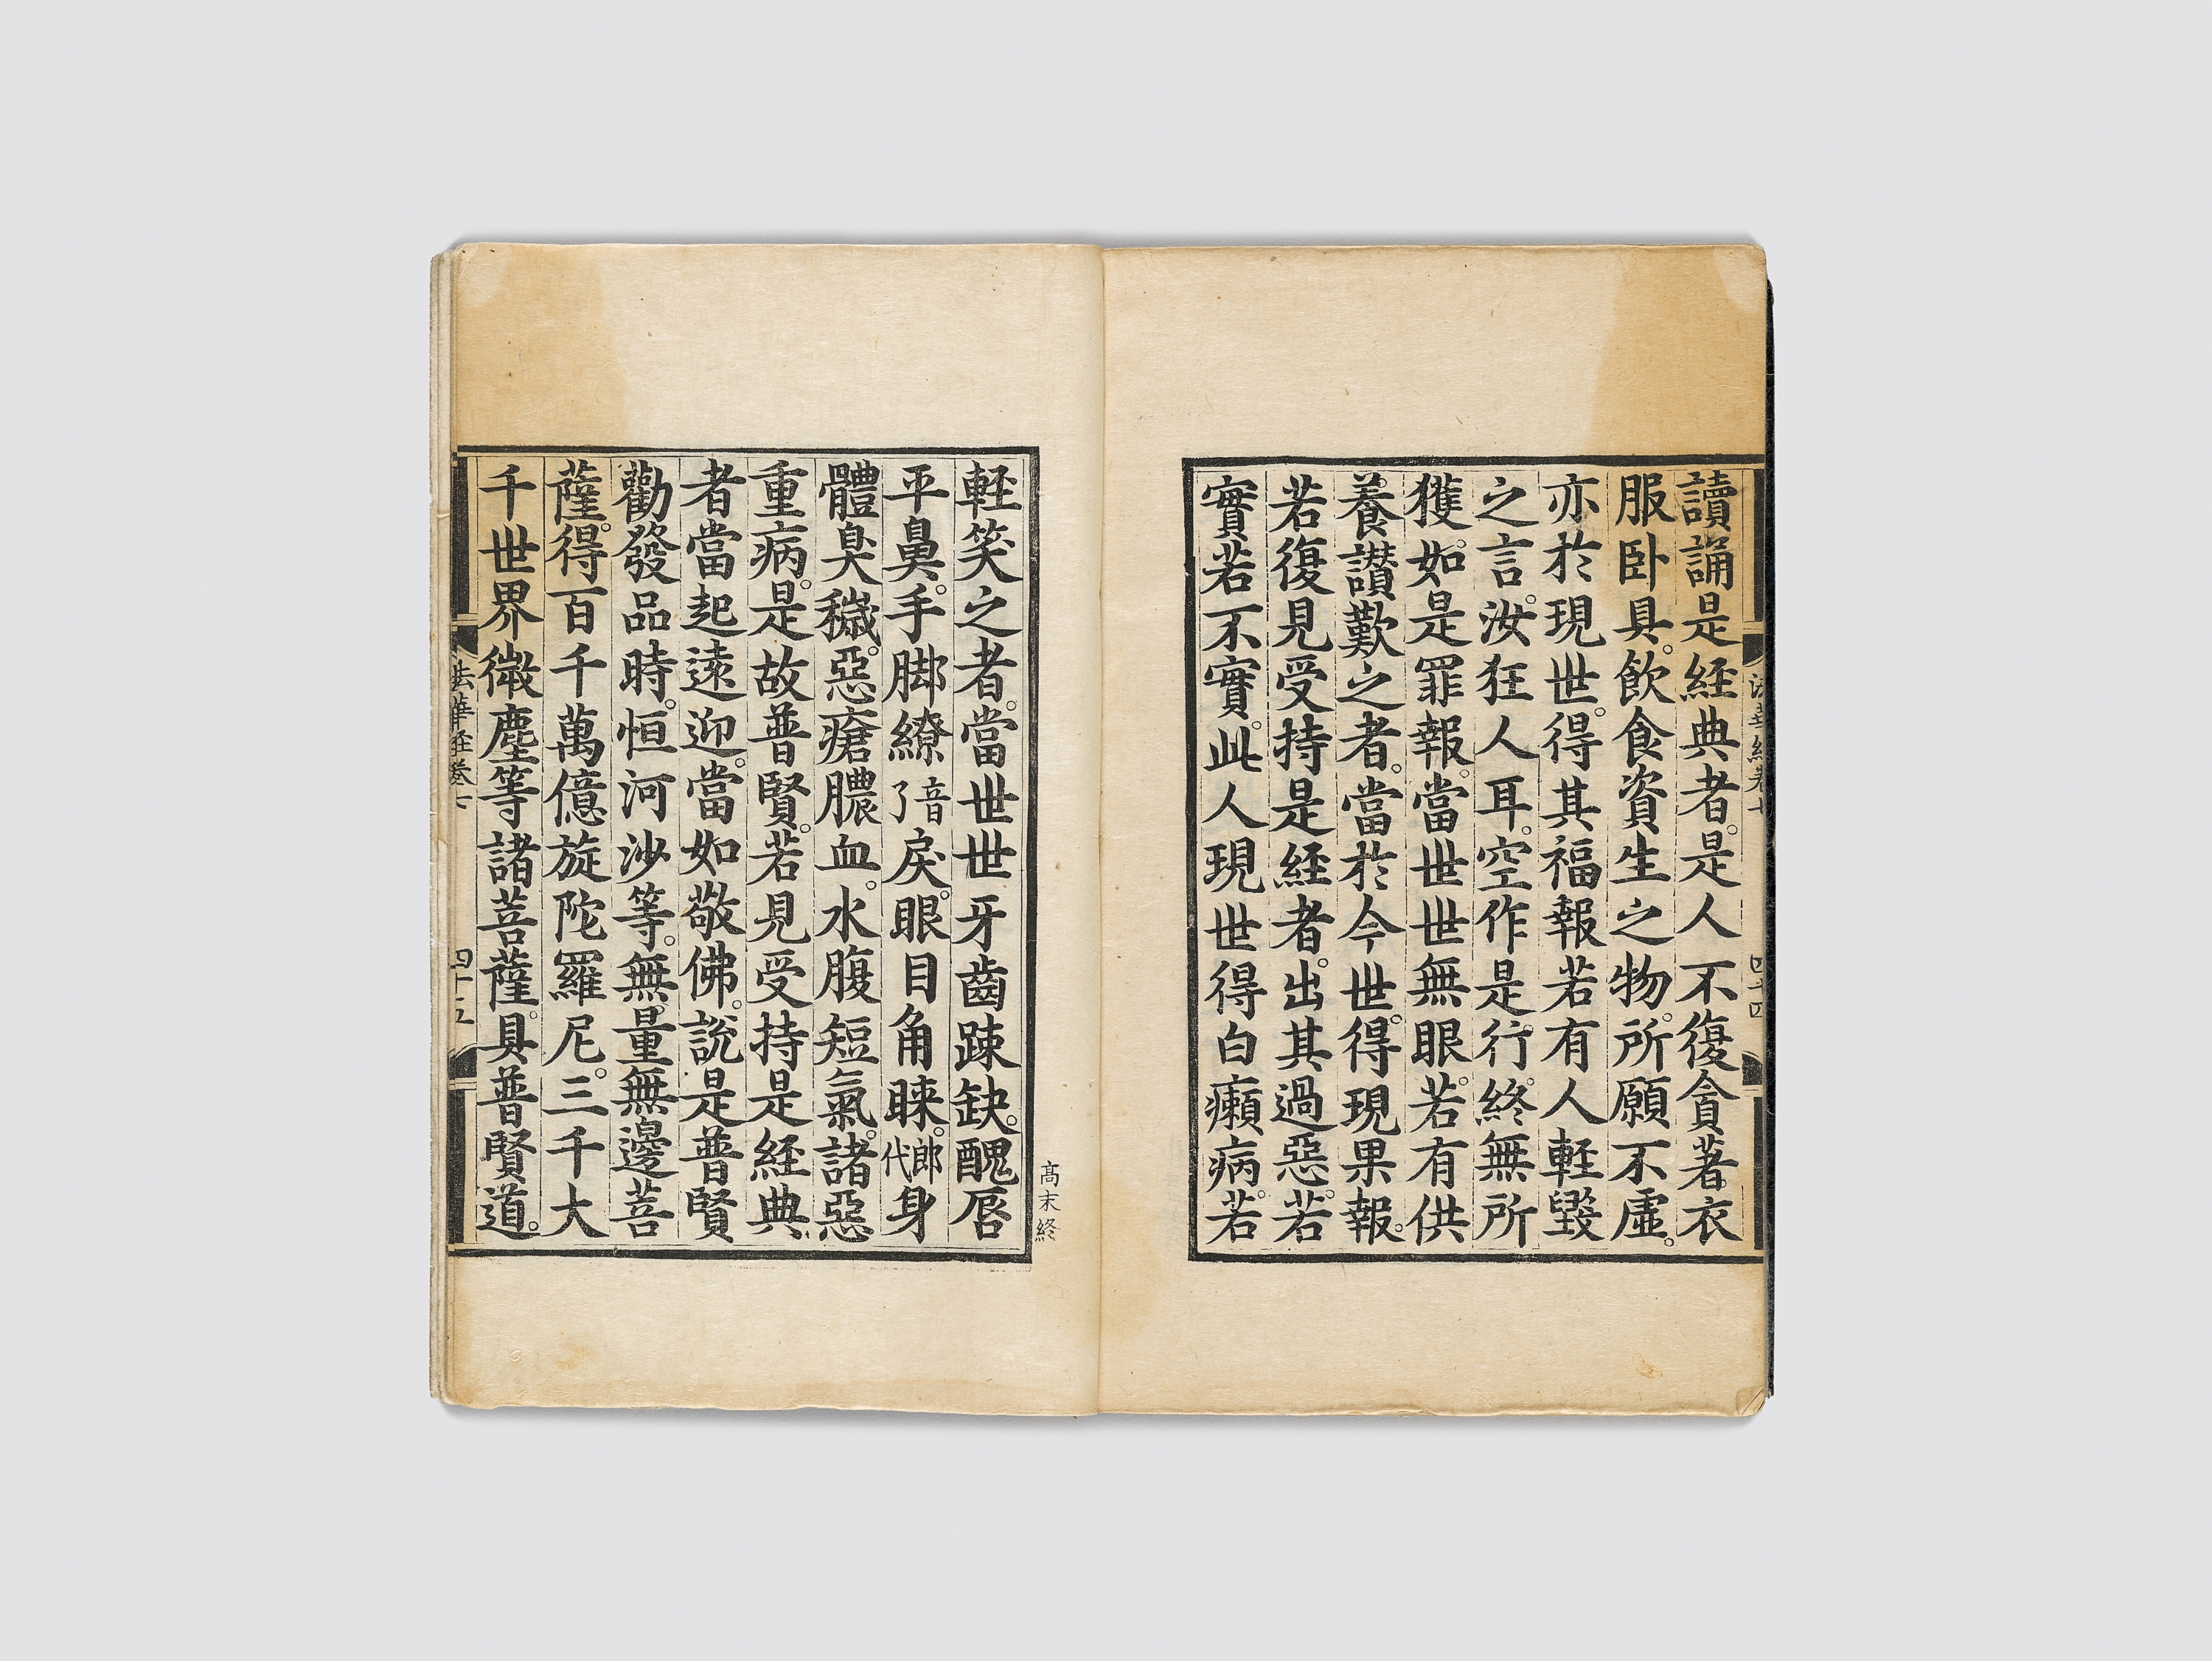 法華經卷七
四十四
讀誦是経典者。是人不復貪著。衣
服卧具。飲食資生之物。所願不虛。
亦於現世。得其福報若有人輕毀
之言。汝狂人耳。空作是行。終無所
獲。如是罪報。當世世無眼。若有供
養讃歎之者。當於今世。得現果報。
若復見受持是経者。出其過惡。若
實若不實。此人現世得白癩病。若
高末終
軽笑之者。當世世牙齒踈缺。醜唇
平鼻。手脚繚音了戾。眼目角睞。郎代身
體臭穢。惡瘡膿血。水腹短氣。諸惡
重病。是故普賢。若見受持是経典
者當起遠迎。當如敬佛。說是普賢
勸發品時。恒河沙等。無量無邊菩
薩。得百千萬億旋陀羅尼。三千大
千世界微塵等諸菩薩。具普賢道。
法華經卷七
四十五